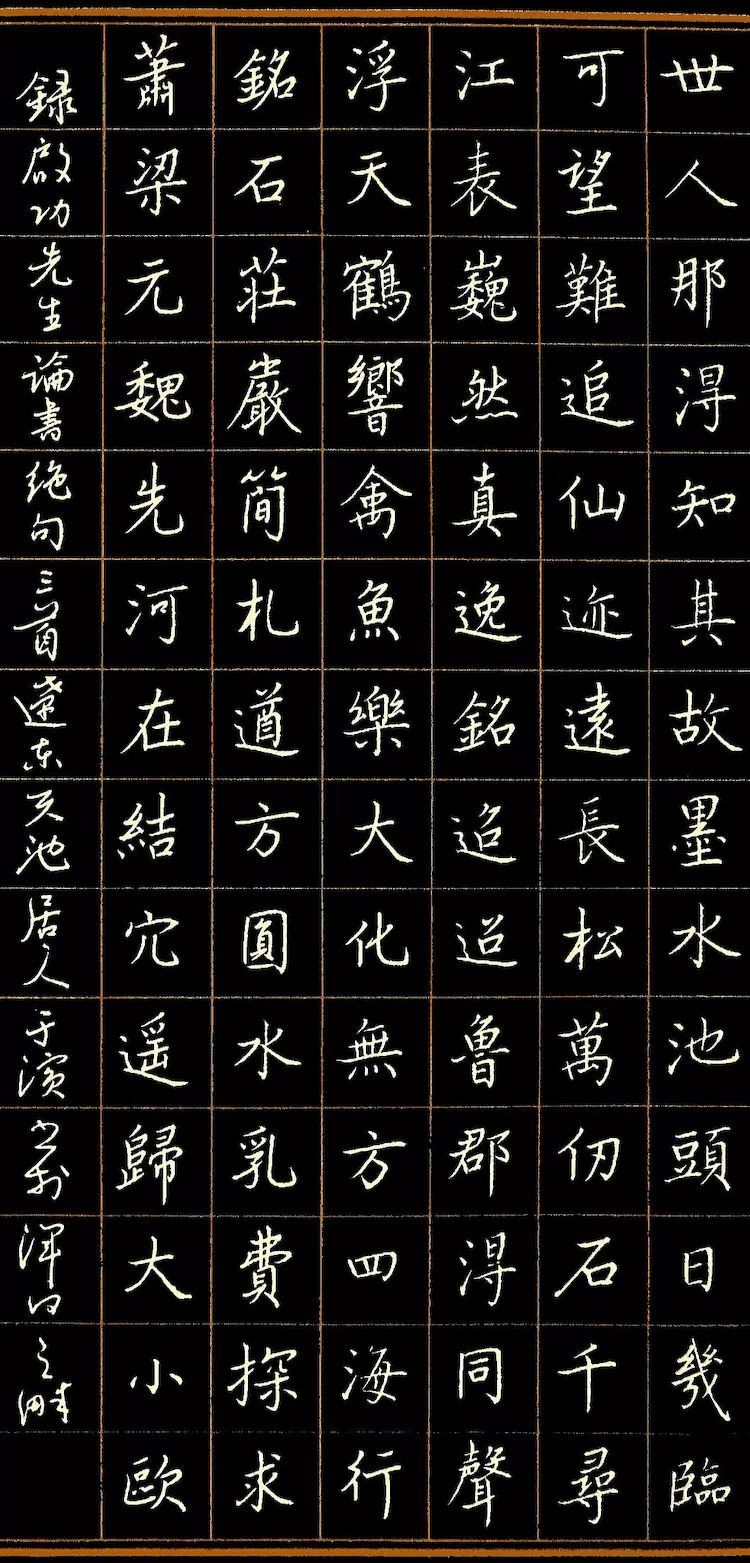 世人那得知其故墨水池頭日幾臨
可望難追仙迹遠長松萬仞石千尋
江表巍然真逸銘迢迢魯郡得同聲
浮天鶴響禽魚樂大化無方四海行
銘石莊嚴簡札遒方圓水乳費探求
蕭梁元魏先河在結穴遥歸大小歐
録啟功先生論書絶句三首遼東天池居人于濱書於渾之畔